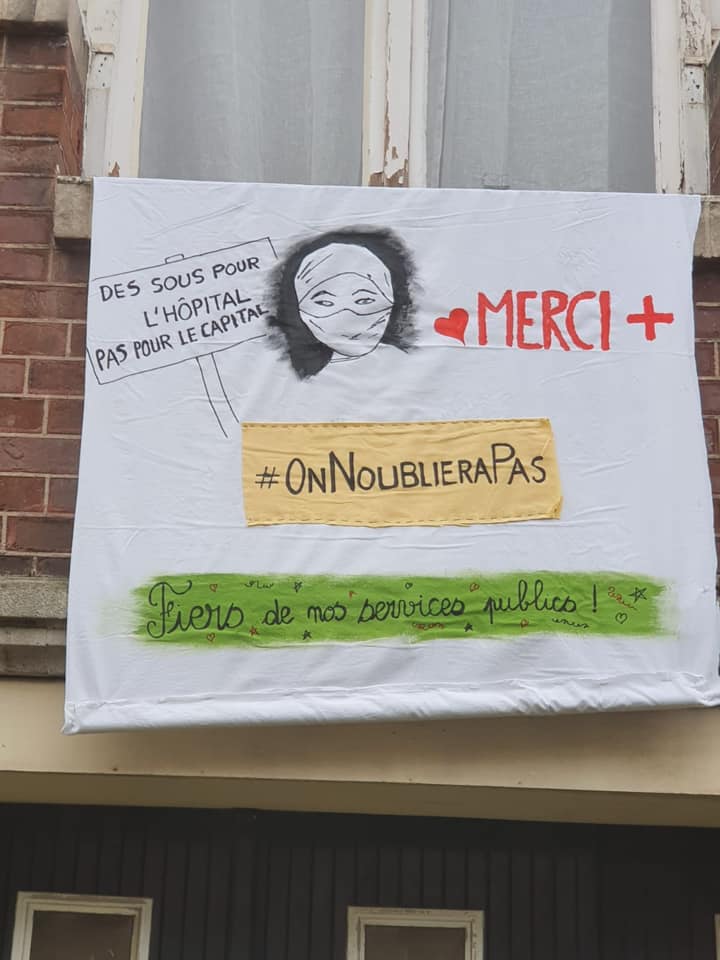 DES SOUS POUR
L'HÔPITAL
PAS POUR LE CAPITAL
MERCI +
#ONNOUBLIERAPAS
Fiers de nos services publics !